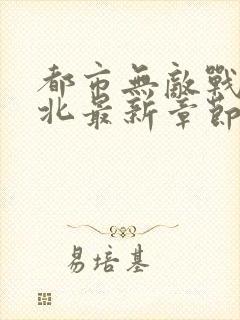 都市無敵戰
北最新章節
易培基